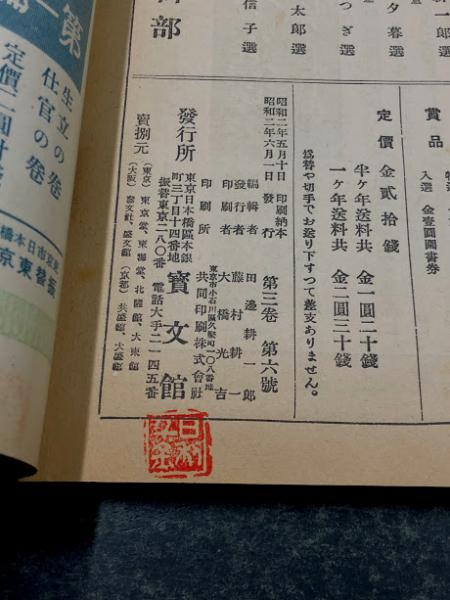 一郎選
夕暮選
つぎ選
太郎選
信子選
部
賞品
入選 金壹圓圖書券
定價 金貳拾錢
半ヶ年送料共 金一圓二十錢
一ヶ年送料共 金二圓三十錢
爲替や切手でお送り下すつて差支ありません。
昭和二年五月十日 印刷納本
昭和二年六月一日 發行
第三卷 第六號
編輯者 田邊耕一郎
發行者 藤村耕一
印刷者 大橋光吉
東京市小石川區久堅町一〇八番地
印刷所 共同印刷株式會社
發行所
東京日本橋區本銀
町三丁目十四番地
寳文館
振替東京二八〇番 電話大手二一四五番
賣捌元
(東京) 東京堂、東海堂、北隆館、大東館
(大阪) 盛文館 (京都) 共盛館、大盛館
第一
生立の卷
仕官の卷
定價二圓
東京市日本橋
振替東京